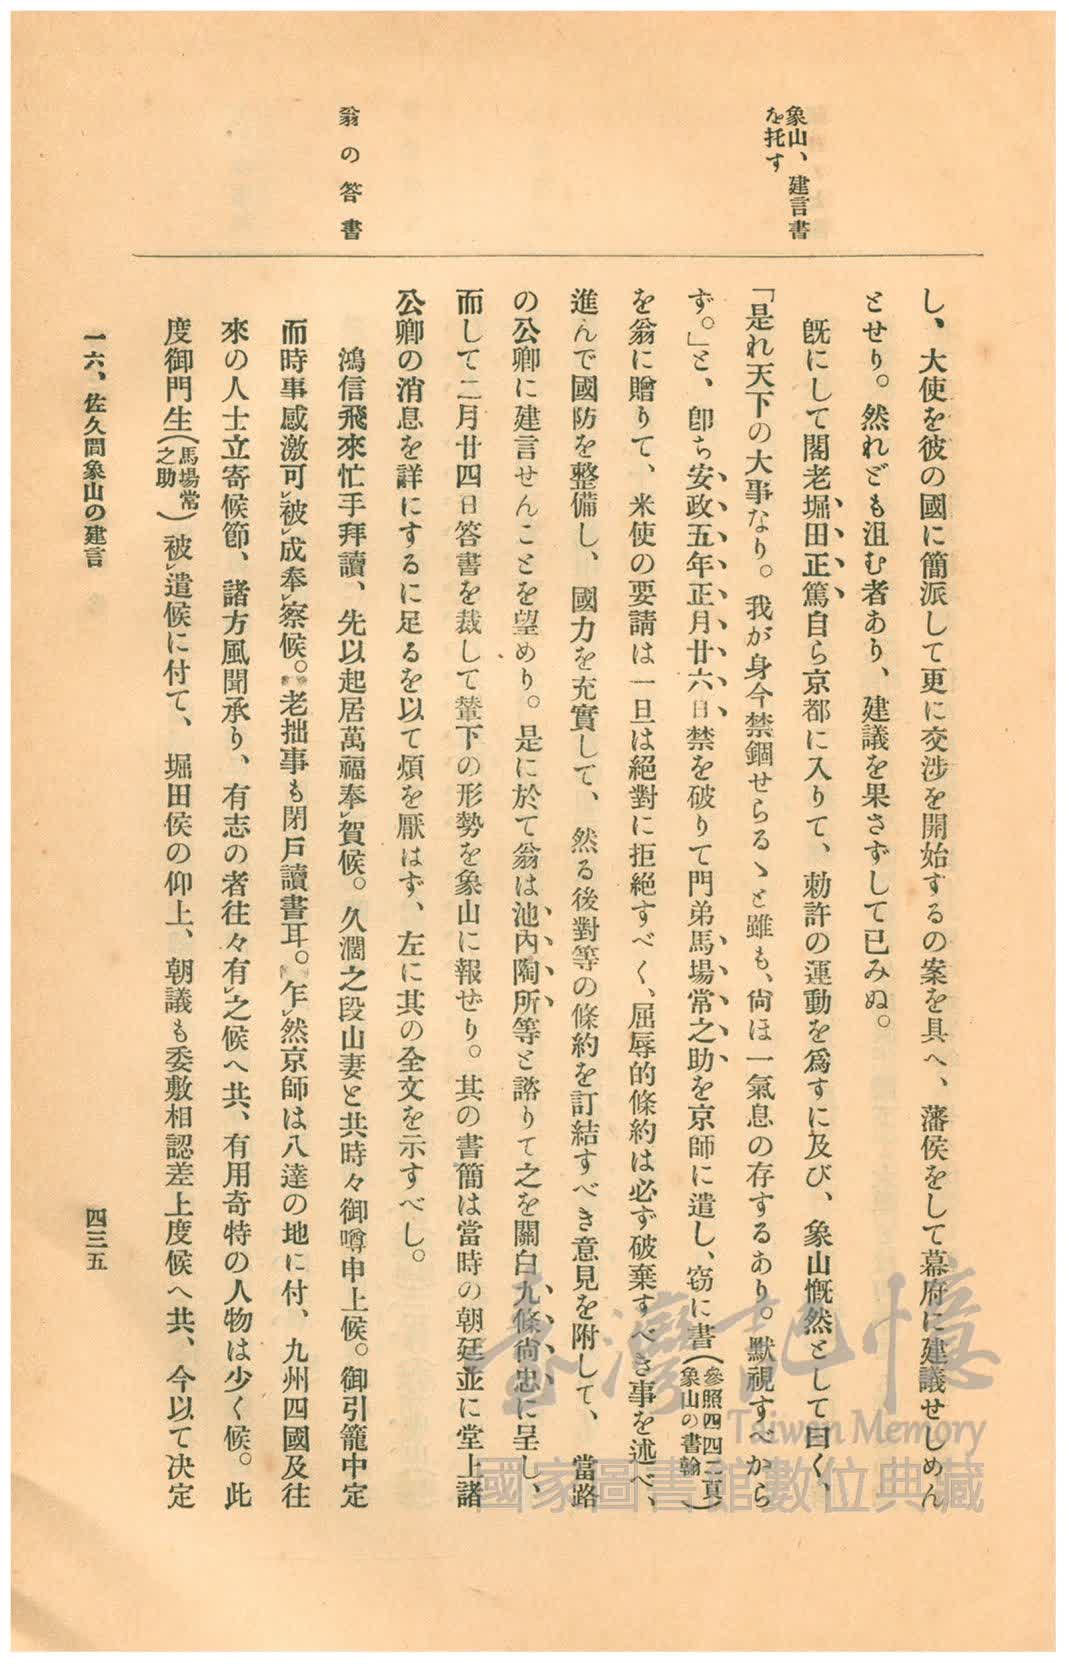 象山、建言書
を托す
翁の答書
し、大使を彼の國に簡派して更に交渉を開始するの案を具へ、藩侯をして幕府に建議せしめん
とせり。然れども沮む者あり、建議を果さずして已みぬ。
既にして閣老堀田正篤自ら京都に入りて、勅許の運動を爲すに及び、象山慨然として曰く、
「是れ天下の大事なり。我が身今禁錮せらるゝと雖も、尙ほ一氣息の存するあり。默視すべから
ず。」と、卽ち安政五年正月廿六日禁を破りて門弟馬場常之助を京師に遣し、窃に書(參照四四二頁象山の書翰)
を翁に贈りて、米使の要請は一旦は絕對に拒絕すべく、屈辱的條約は必ず破棄すべき事を述べ、
進んで國防を整備し、國力を充實して、然る後對等の條約を訂結すべき意見を附して、當路
の公卿に建言せんことを望めり。是に於て翁は池內陶所等と諮りて之を關白九條尙忠に呈し、
而して二月廿四日答書を裁して輦下の形勢を象山に報ぜり。其の書簡は當時の朝廷並に堂上諸
公卿の消息を詳にするに足るを以て煩を厭はず、左に其の全文を示すべし。
鴻信飛來忙手拜讀、先以起居萬福奉レ賀候。久濶之段山妻と共時々御噂申上候。御引籠中定
而時事感激可レ被レ成奉レ察候。老拙事も閉戶讀書耳。乍レ然京師は八達の地に付、九州四國及往
來の人士立寄候節、諸方風聞承り、有志の者往々有レ之候へ共、有用奇特の人物は少く候。此
度御門生(馬場常之助)被レ遣候に付て、堀田侯の仰上、朝議も委敷相認差上度候へ共、今以て決定
一六、佐久間象山の建言
四三五
臺灣記憶
Taiwan Memory
國家圖書館數位典藏